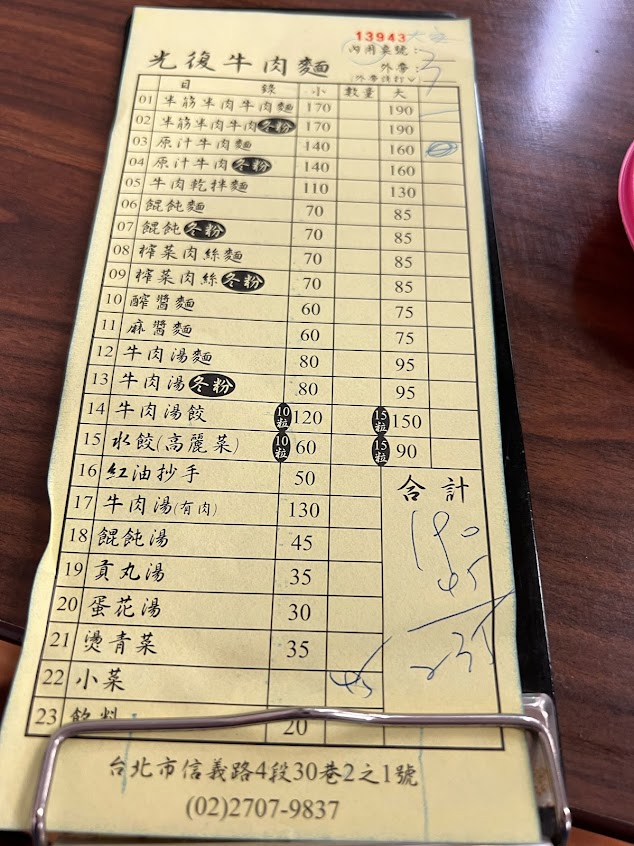 13943 大安
內用桌號:
外帶:
(外帶請打∨)
光復牛肉麵
目錄 小 數量 大
01 半筋半肉牛肉麵 170 190
02 半筋半肉牛肉冬粉 170 190
03 原汁牛肉麵 140 160
04 原汁牛肉冬粉 140 160
05 牛肉乾拌麵 110 130
06 餛飩麵 70 85
07 餛飩冬粉 70 85
08 榨菜肉絲麵 70 85
09 榨菜肉絲冬粉 70 85
10 酢醬麵 60 75
11 麻醬麵 60 75
12 牛肉湯麵 80 95
13 牛肉湯冬粉 80 95
14 牛肉湯餃 10粒 120 15粒 150
15 水餃(高麗菜) 10粒 60 15粒 90
16 紅油抄手 50
合計
17 牛肉湯(有肉) 130
190
18 餛飩湯 45
45
19 貢丸湯 35
20 蛋花湯 30
21 燙青菜 35
235
22 小菜 45
23 飲料 20
台北市信義路4段30巷2之1號
(02)2707-9837